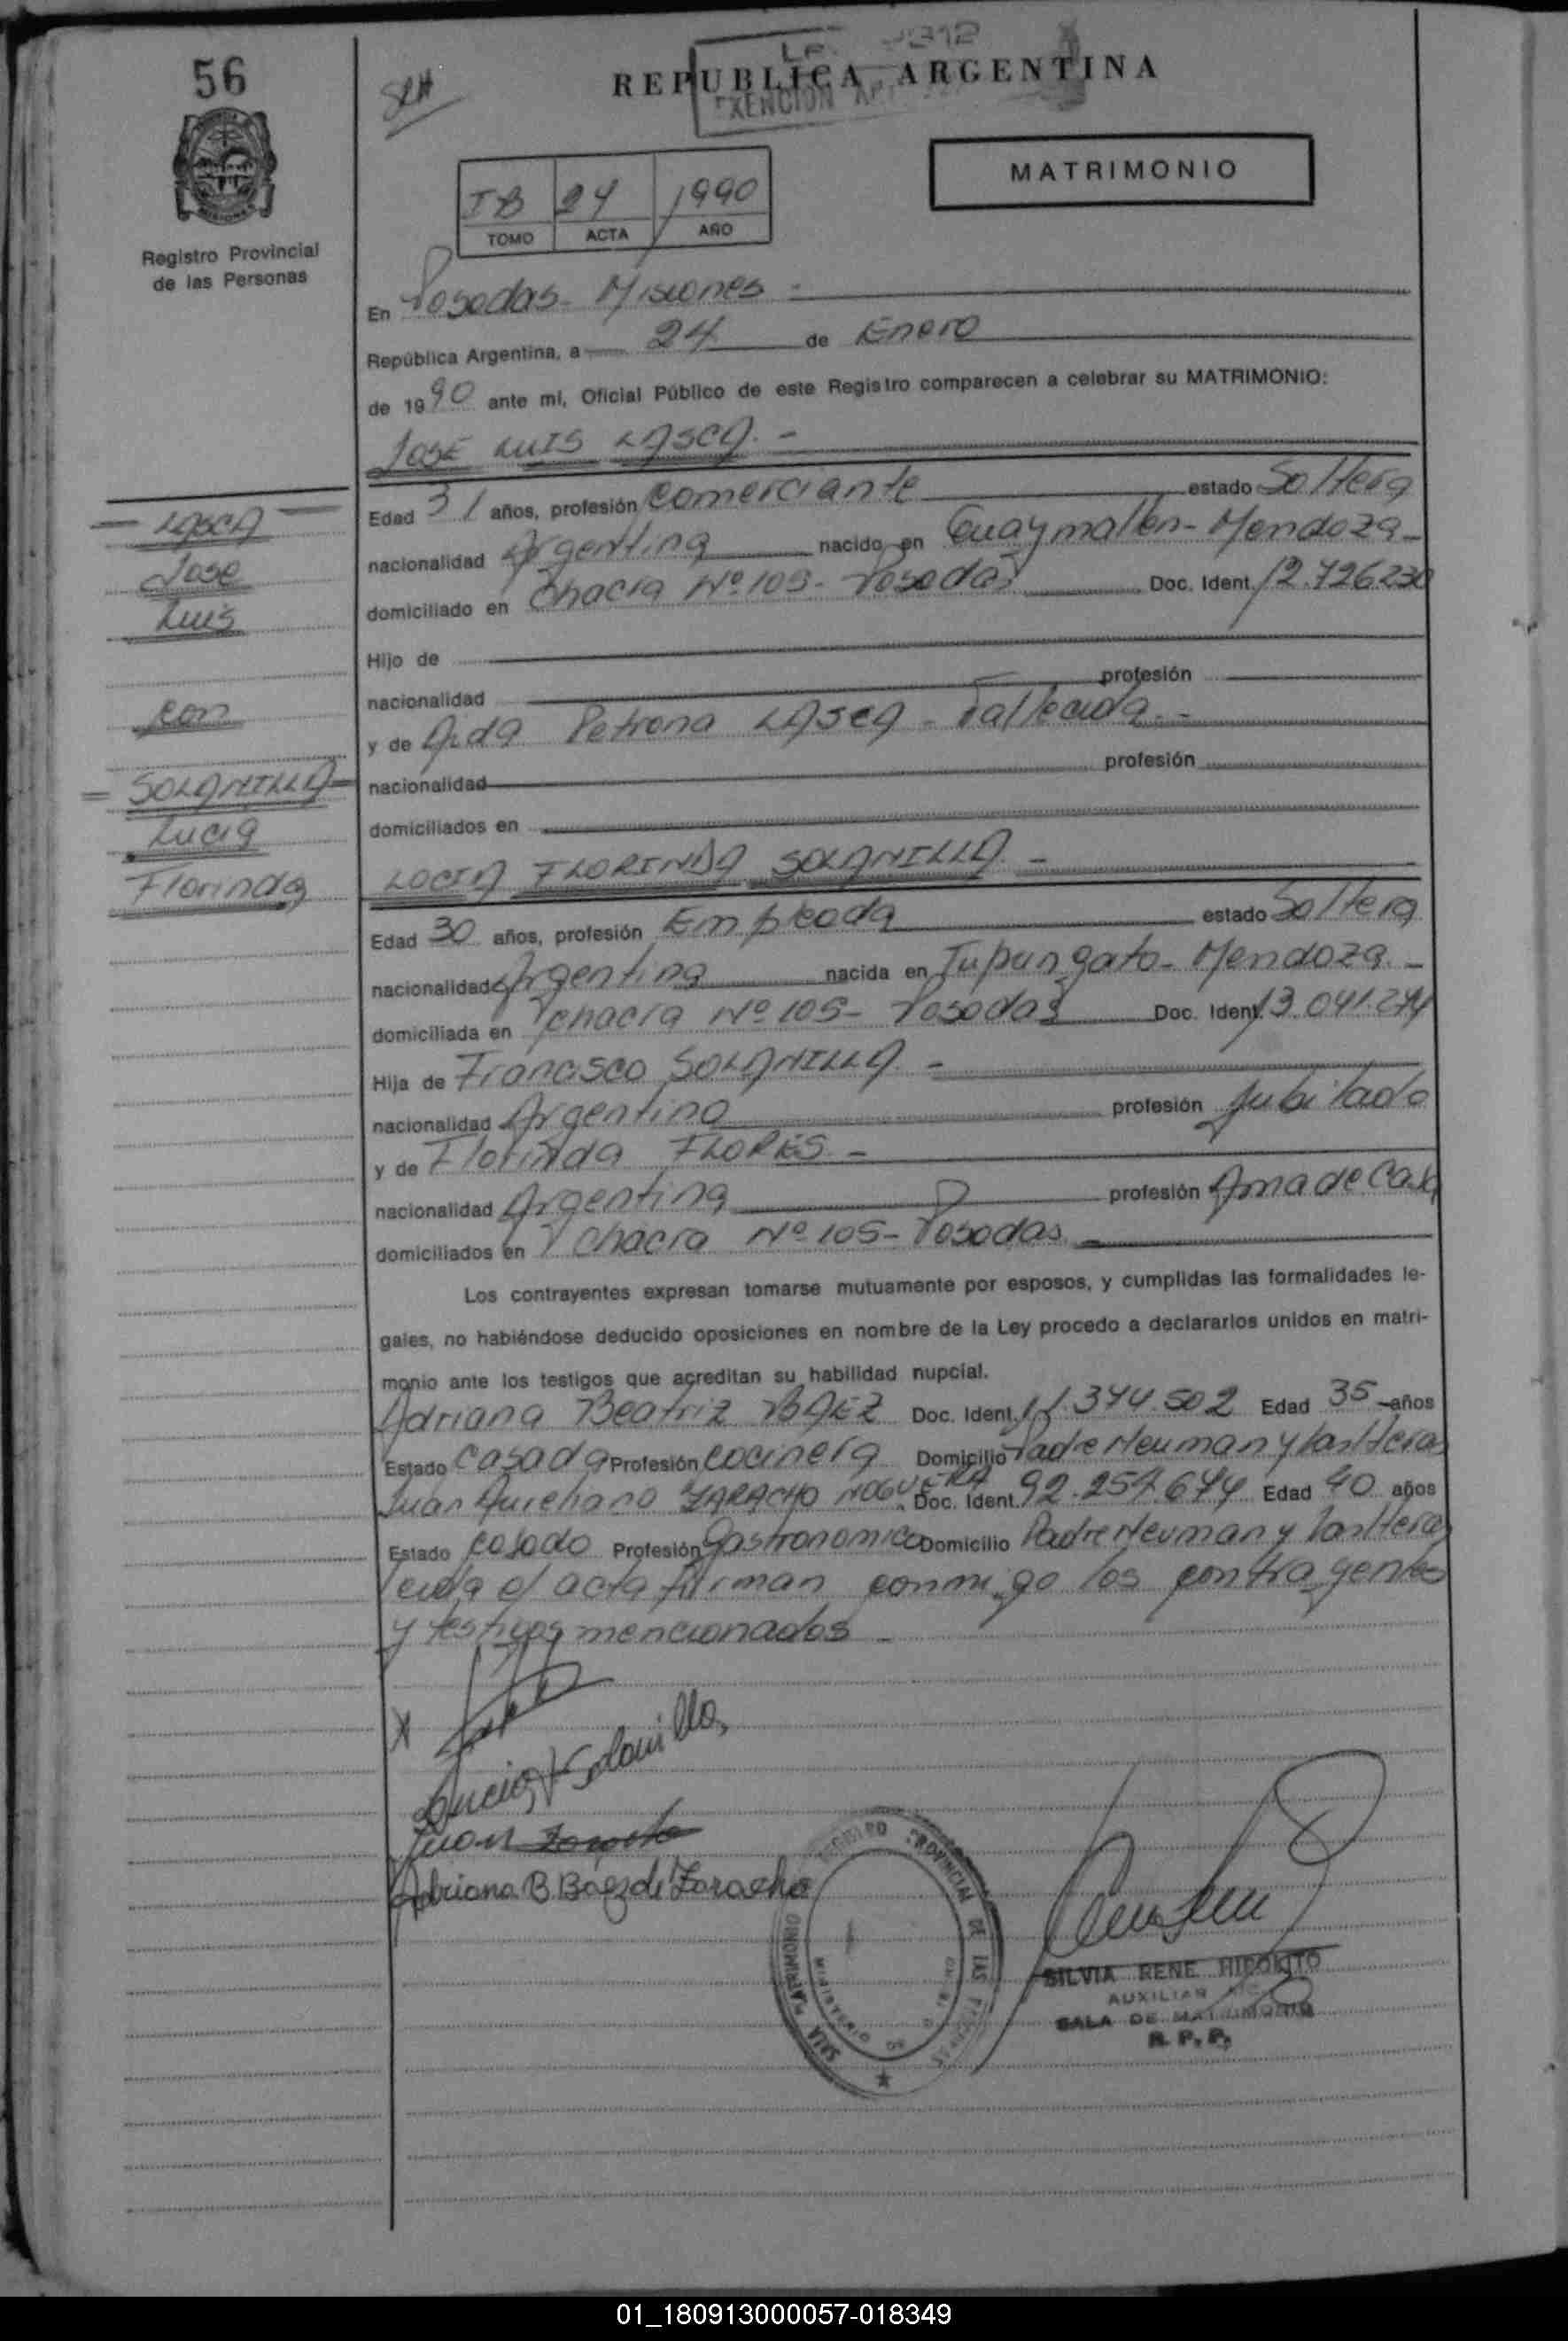 56
REPUBLICA ARGENTINA
EXENCION
MATRIMONIO
Registro Provincial
de las Personas
IB 24 1990
TOMO ACTA AÑO
En Posadas - Misiones -
República Argentina, a 24 de Enero
de 1990 ante mí, Oficial Público de este Registro comparecen a celebrar su MATRIMONIO:
JOSE LUIS LASCA. -
LASCA
Jose
Luis
con
SOLANILLA
Lucia
Florinda
Edad 31 años, profesión Comerciante estado Soltero
nacionalidad Argentina nacido en Guaymallen - Mendoza -
domiciliado en Chacra Nº 105 - Posadas Doc. Ident. 12.726.230
Hijo de
nacionalidad profesión
y de Aida Petrona LASCA - Fallecida. -
nacionalidad profesión
domiciliados en
LUCIA FLORINDA SOLANILLA. -
Edad 30 años, profesión Empleada estado Soltera
nacionalidad Argentina nacida en Tupungato - Mendoza -
domiciliada en Chacra Nº 105 - Posadas Doc. Ident. 13.041.274
Hija de Francisco SOLANILLA. -
nacionalidad Argentino profesión Jubilado
y de Florinda FLORES. -
nacionalidad Argentina profesión Ama de Casa
domiciliados en Chacra Nº 105 - Posadas -
Los contrayentes expresan tomarse mutuamente por esposos, y cumplidas las formalidades le-
gales, no habiéndose deducido oposiciones en nombre de la Ley procedo a declararlos unidos en matri-
monio ante los testigos que acreditan su habilidad nupcial.
Adriana Beatriz BAEZ Doc. Ident. 11.374.502 Edad 35 años
Estado Casada Profesión Cocinera Domicilio Padre Neuman y
Juan Aureliano ZARACHO NOGUERA Doc. Ident. 92.257.674 Edad 40 años
Estado Casado Profesión Gastronomico Domicilio Padre Neuman y
Leida el acta firman conmigo los contrayentes
y testigos mencionados -
X
Lucia F Solanilla
Juan Zaracho
Adriana B Baez de Zaracho
REGISTRO PROVINCIAL DE LAS PERSONAS
SALA MATRIMONIO
MINISTERIO DE GOBIERNO
SILVIA RENE HIPOLITO
AUXILIAR
SALA DE MATRIMONIO
R. P. P.
01_180913000057-018349